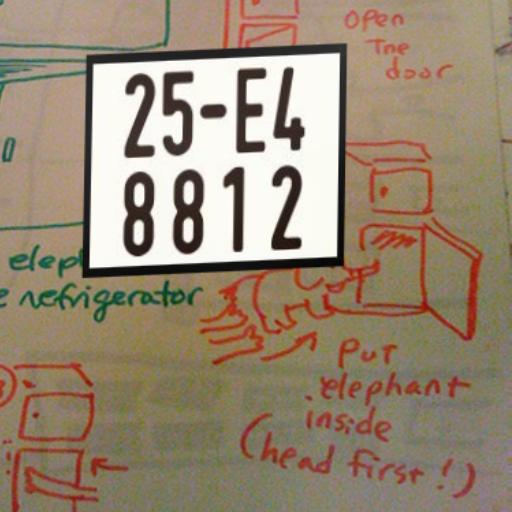 open
The
door
25-E4
8812
refrigerator
put
elephant
inside
(head first!)